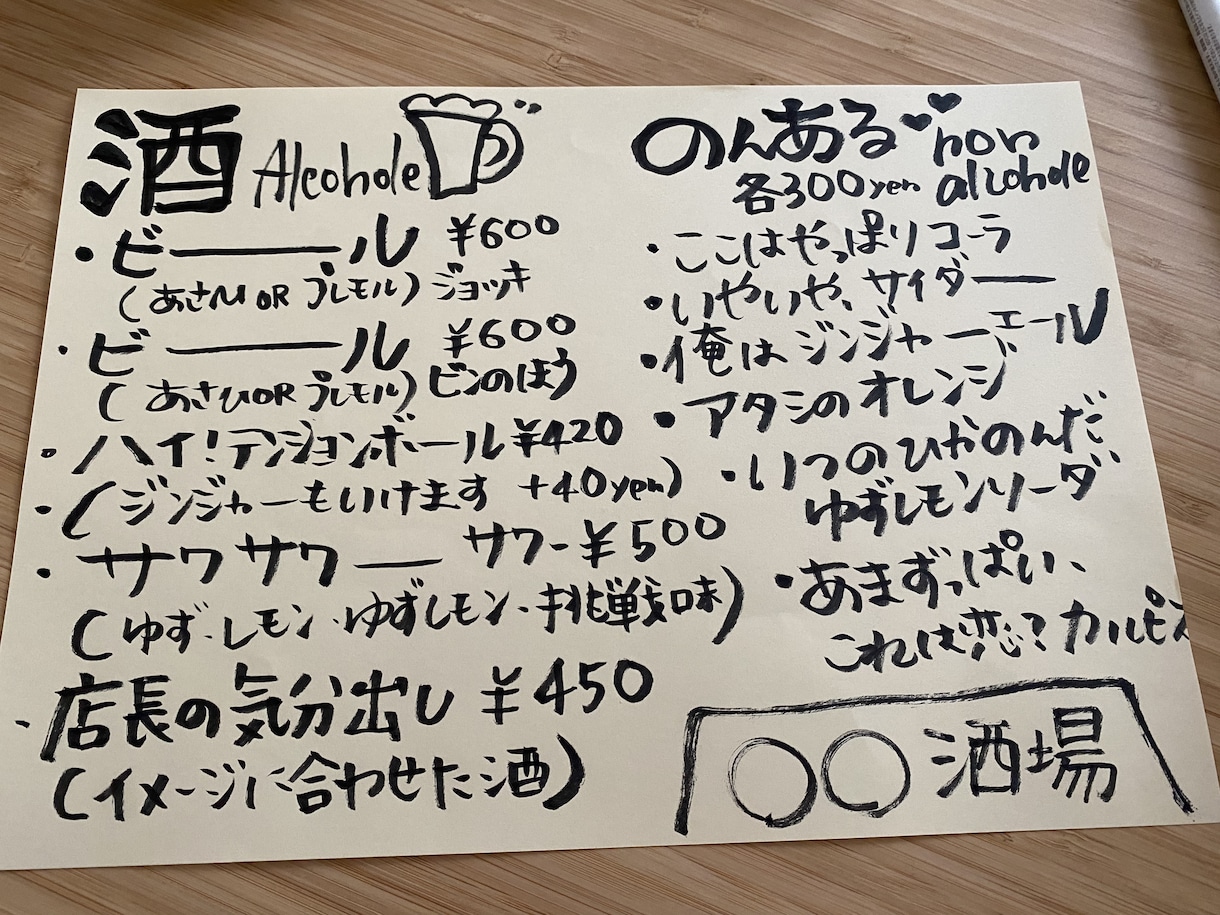 酒 Alcohole
・ビーール ¥600
(あさひOR プレモル) ジョッキ
・ビーール ¥600
(あさひOR プレモル) ビンのほう
・ハイ!テンションボール ¥420
・(ジンジャーもいけます +40yen)
・サワサワーサワー ¥500
(ゆず・レモン・ゆずレモン・挑戦味)
・店長の気分出し ¥450
(イメージに合わせた酒)
のんある♥♥ non
各300yen alcohole
・ここはやっぱりコーラ
・いやいや、サイダー
・俺はジンジャーエール
・アタシのオレンジ
・いつのひかのんだ
ゆずレモンソーダ
・あまずっぱい、
これは恋?カルピス
〇〇酒場